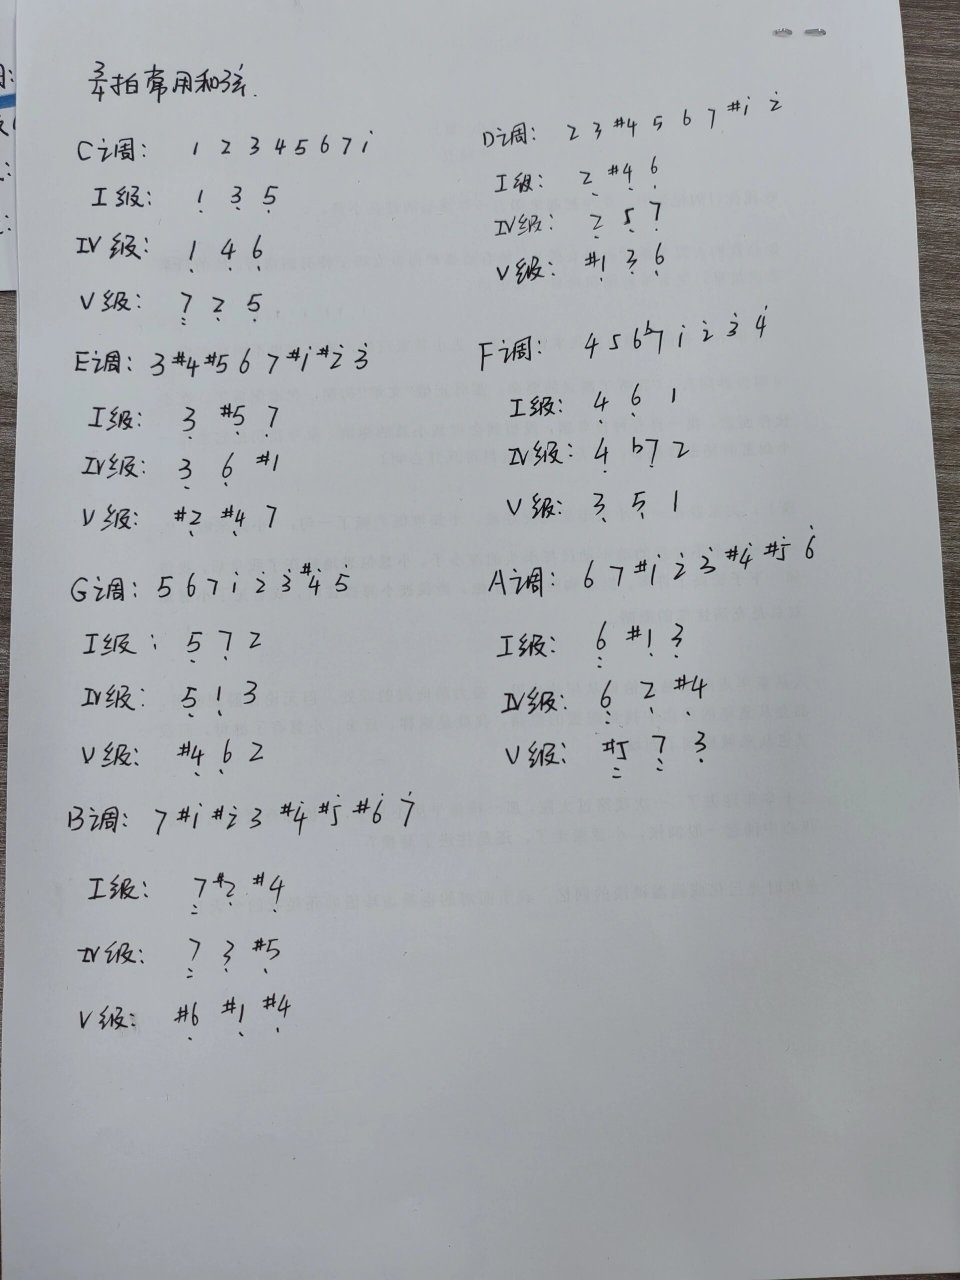 3/4拍常用和弦.
C调: 1 2 3 4 5 6 7 i
I级: 1̣ 3̣ 5̣
IV级: 1̣ 4̣ 6̣
V级: 7̤ 2̣ 5̣
D调: 2 3 #4 5 6 7 #i 2̇
I级: 2̣ #4̣ 6̣
IV级: 2̣ 5̣ 7̣
V级: #1̣ 3̣ 6̣
E调: 3 #4 #5 6 7 #i #2̇ 3̇
I级: 3̣ #5̣ 7̣
IV级: 3̣ 6̣ #1
V级: #2̣ #4̣ 7
F调: 4 5 6 b7 i 2̇ 3̇ 4̇
I级: 4̣ 6̣ 1
IV级: 4̣ b7̣ 2
V级: 3̣ 5̣ 1
G调: 5 6 7 i 2̇ 3̇ #4̇ 5
I级: 5̣ 7̣ 2
IV级: 5̣ 1 3
V级: #4̣ 6̣ 2
A调: 6 7 #i 2̇ 3̇ #4̇ #5̇ 6̇
I级: 6̤ #1̣ 3̣
IV级: 6̤ 2̣ #4̣
V级: #5̤ 7̤ 3̣
B调: 7 #i #2̇ 3 #4̇ #5̇ #6̇ 7̇
I级: 7̤ #2̣ #4̣
IV级: 7̤ 3̣ #5̣
V级: #6̣ #1̣ #4̣